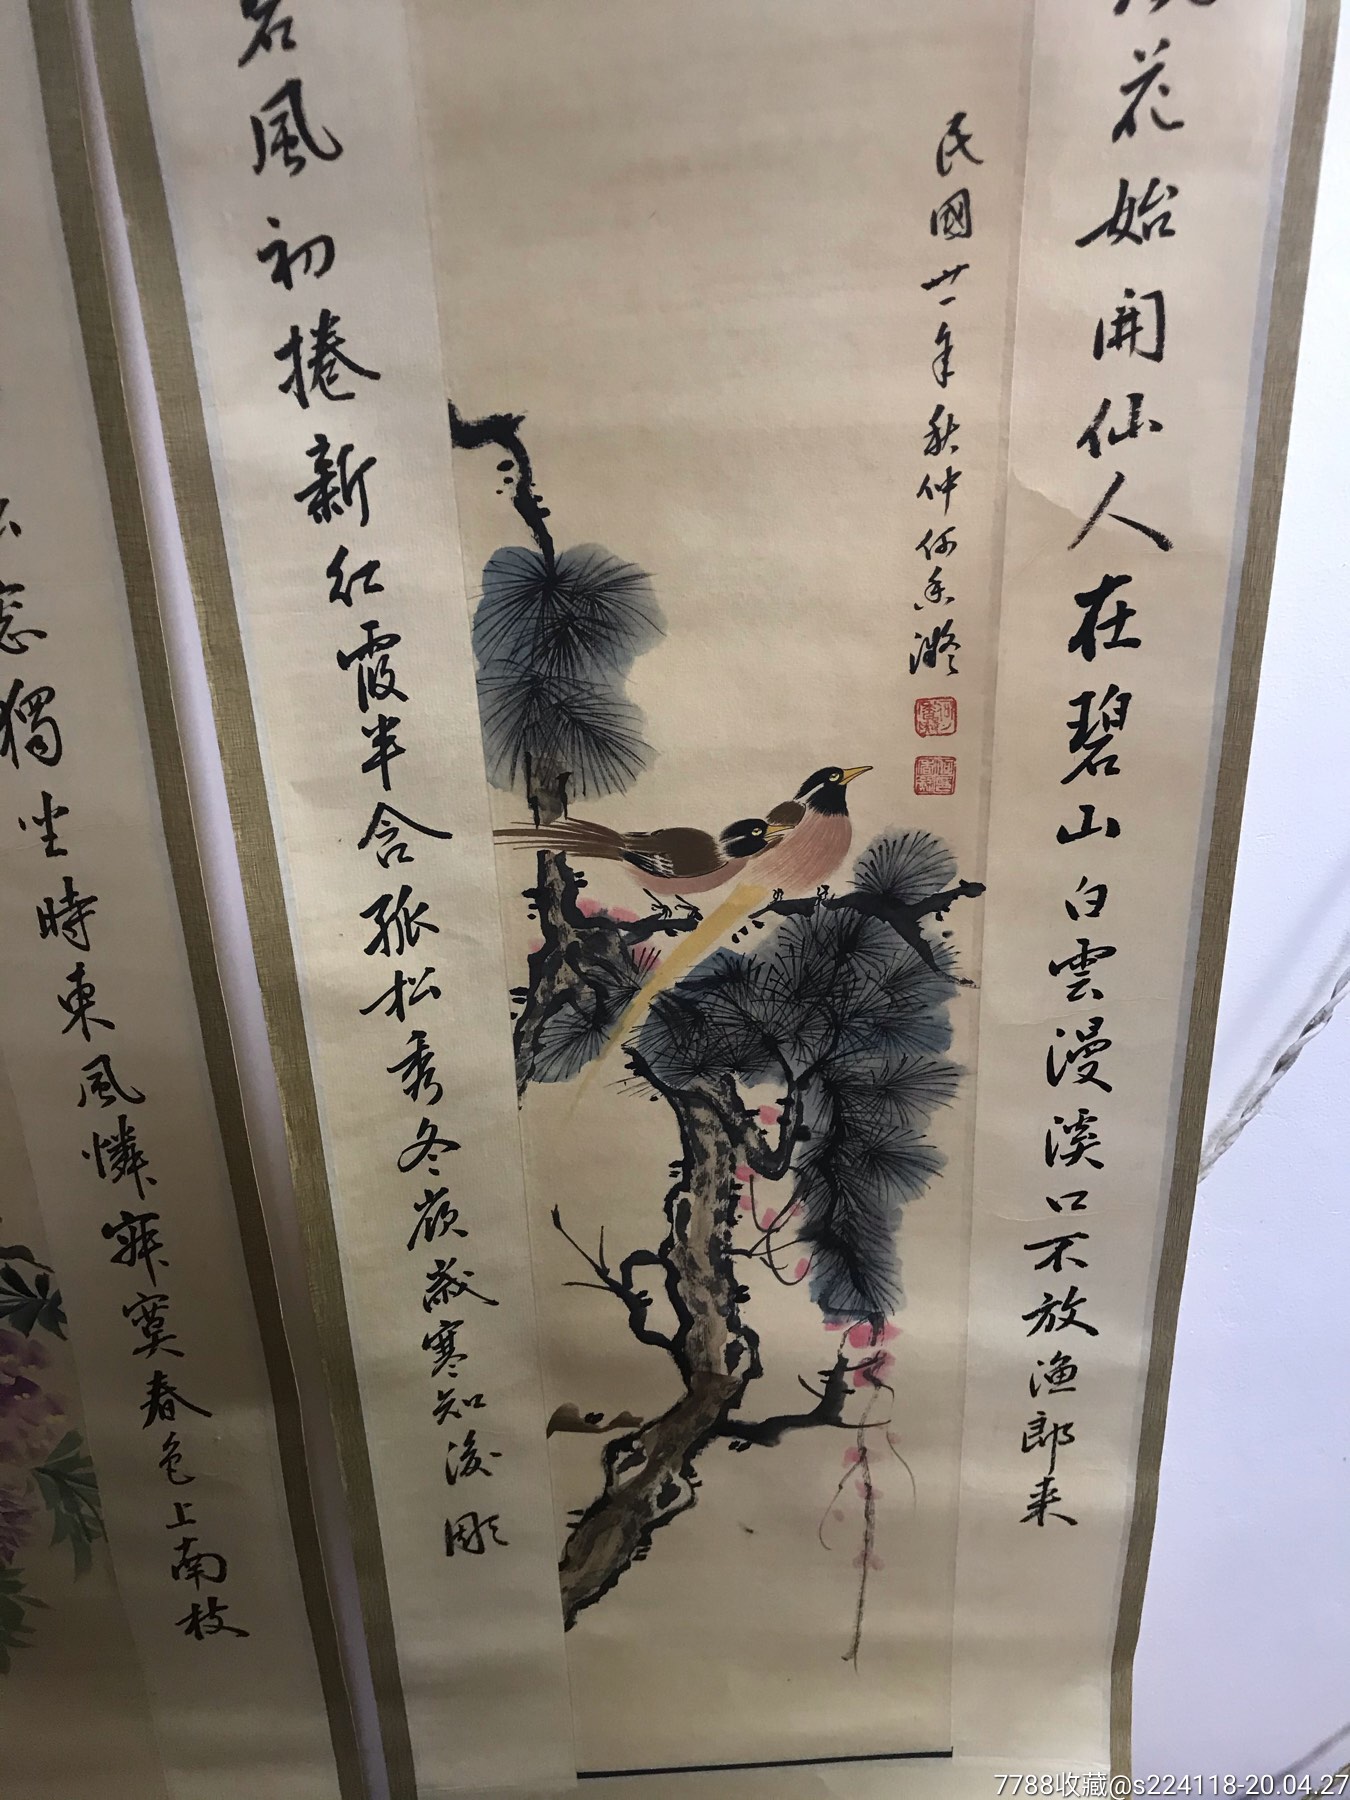 花始開仙人在碧山白雲漫溪口不放漁郎来
民國廿一年秋仲何香凝
風初捲新紅霞半含孤松秀冬嶺歲寒知後彫
獨坐時東風憐寂寞春色上南枝
7788收藏@s224118-20.04.27